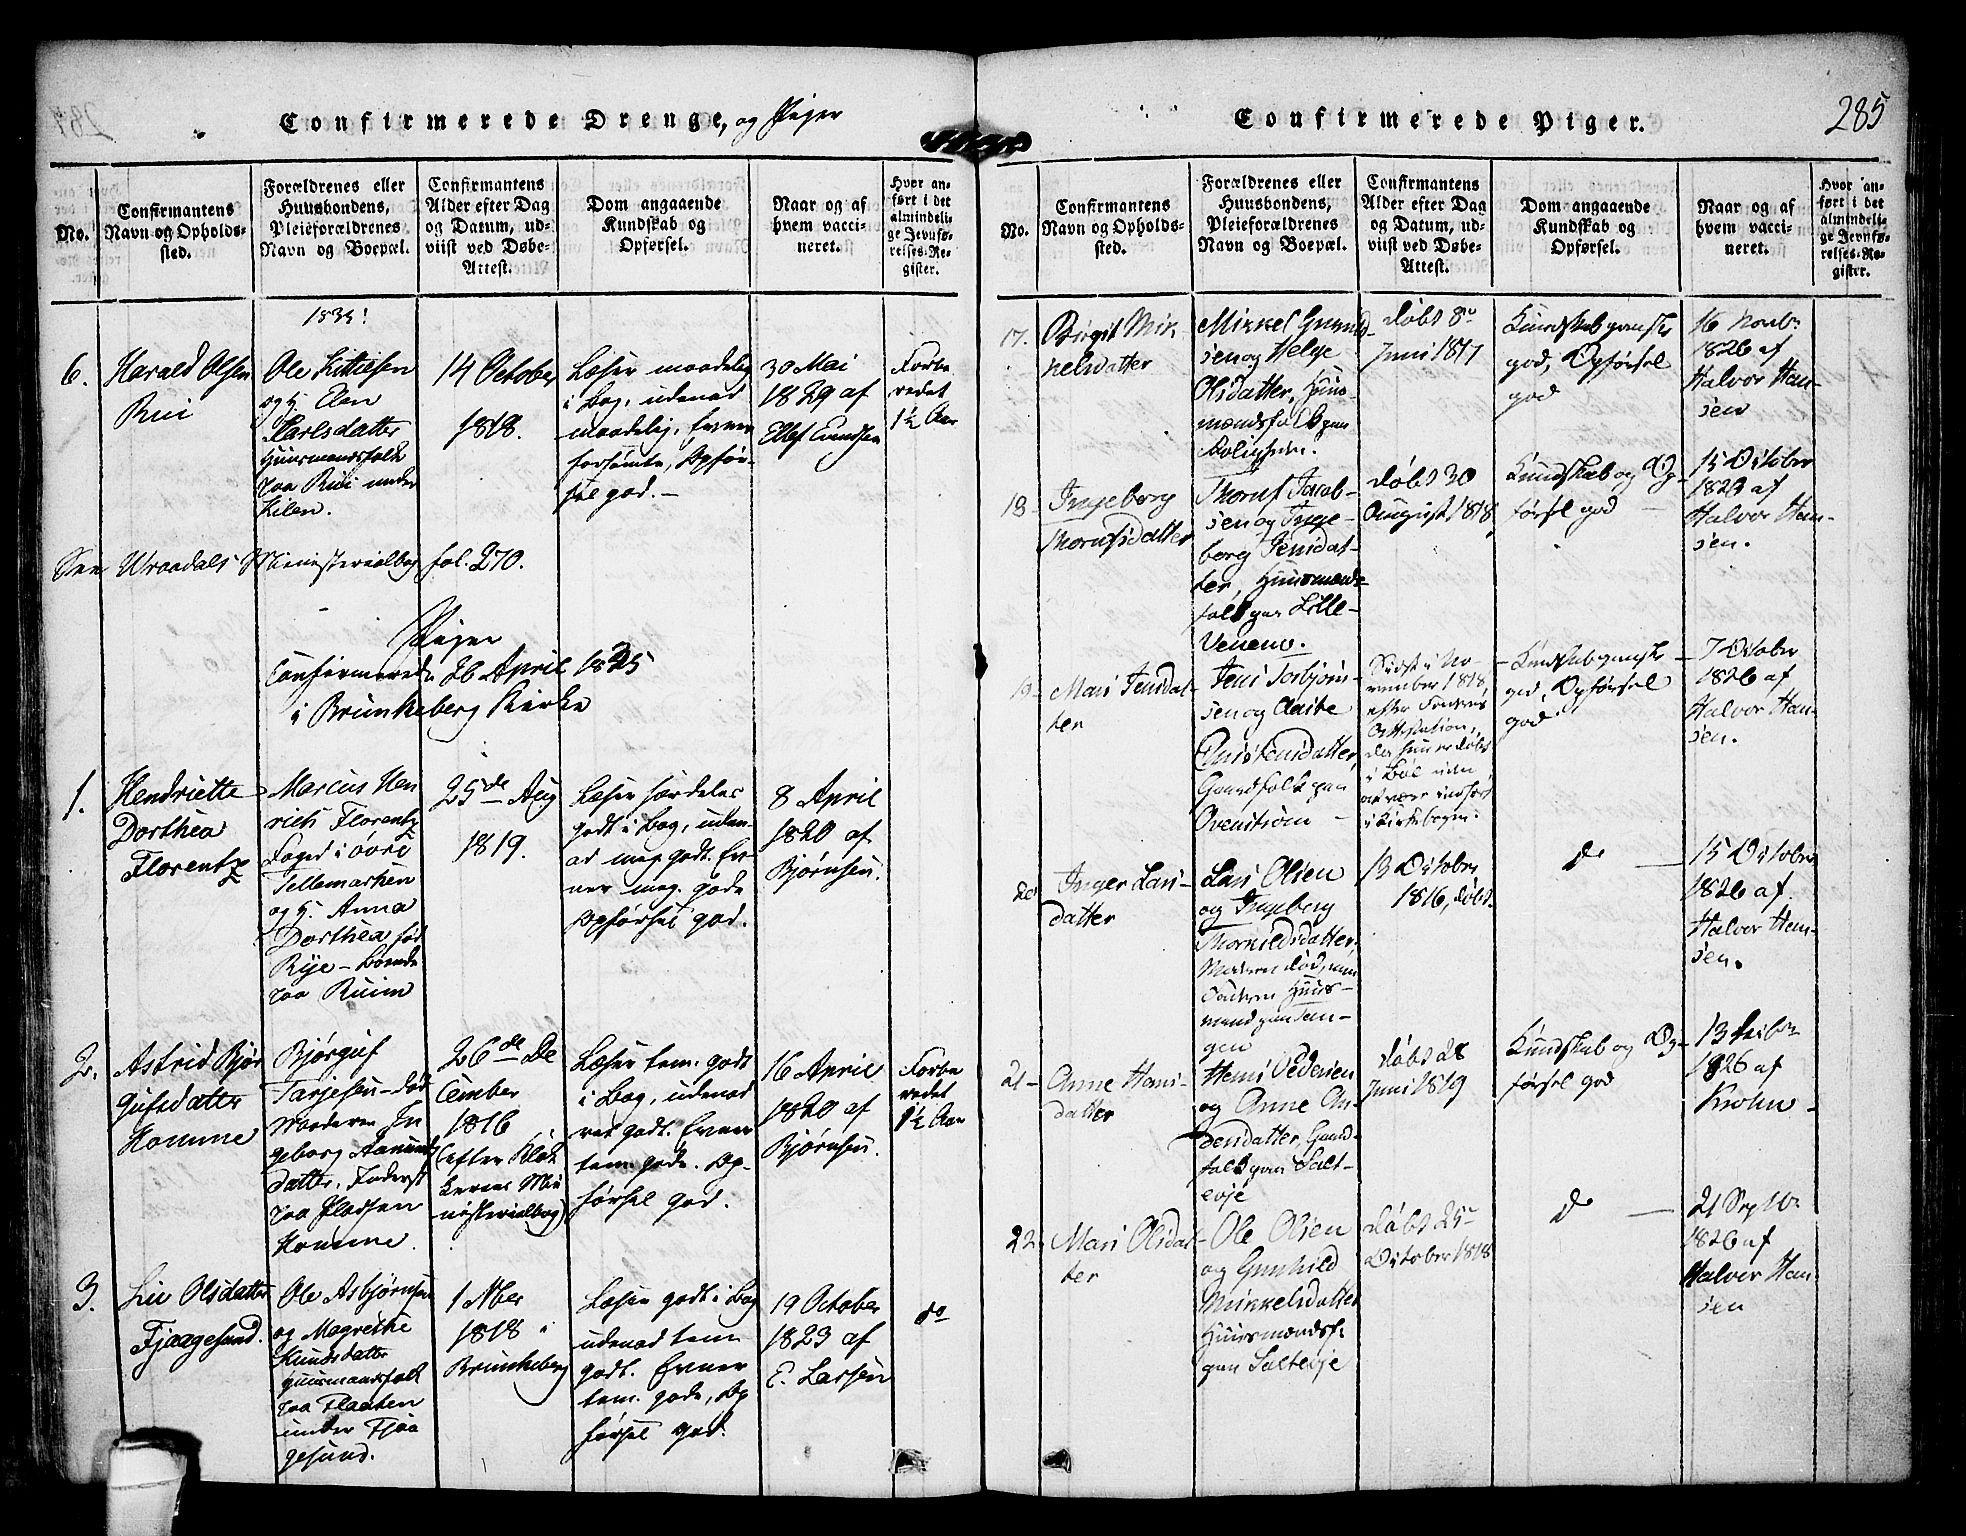 Confirmerede Drenge, og Piger
No.
Confirmantens
Navn og Opholds-
sted.
Forældrenes eller
Huusbondens,
Pleieforældrenes
Navn og Boepæl.
Confirmantens
Alder efter Dag
og Datum, ud-
viist ved Døbe-
Attest.
Dom angaaende
Kundskab og
Opførsel.
Naar og af
hvem vacci-
neret.
Hvor an-
ført i det
almindeli-
ge Jevnfø-
relses-Re-
gister.
6.
Harald Olsen
Rui
Ole Kittilsen
og H. Elen
Karlsdatter
Huusmandsfolk
paa Rui under
Kilen.
14 October
1818.
Læser maadelig
i Bog, udenad
maadelig, Evner
forsømte, Opfør-
sel god. -
30 Mai
1829 af
Ellef Evindsen
Forbe
redet
1½ Aar
See Wraadals Ministerialbog fol. 270.
Piger
Confirmerede 26 April 1835
i Brunkeberg Kirke
1.
Hendriette
Dorthea
Florentz
Marcus Hen
rich Florentz
Foged i øvre
Tellemarken
og H. Anna
Dorthea fød
Rye - Boende
paa Ruim
25de Aug
1819.
Læser særdeles
godt i Bog, uden-
ad meg. godt. Ev-
ner meg. gode
Opførsel god.
8 April
1820 af
Bjørnsen.
2.
Astrid Bjør
gufsdatter
Homme
Bjørguf
Tarjesen - død
Moderen In
geborg Aamund
datter. Føderst
paa Pladsen
Homme.
26de De
cember
1816
(efter Klok
kerens Mi
nisterialbog)
Læser tem. godt
i Bog, udenad
ret godt. Evner
tem. gode. Op-
førsel god.
16 April
1820 af
Bjørnsen.
Forbe
redet
1½ Aar
3.
Live Olsdatter
Fjaagesund.
Ole Asbjørnsen
og Magrethe
Knudsdatter
Huusmandsfolk
paa Flaaten
under Fjaa
gesund.
1 Nber
1818
Brunkeberg
Læser godt i Bog
udenad tem.
godt. Evner
tem. gode, Op
førsel god.
19 October
1823 af
E. Larsen
do
Confirmerede Piger.
285
No.
Confirmantens
Navn og Opholds-
sted.
Forældrenes eller
Huusbondens,
Pleieforældrenes
Navn og Boepæl.
Confirmantens
Alder efter Dag
og Datum, ud-
viist ved Døbe-
Attest.
Dom angaaende
Kundskab og
Opførsel.
Naar og af
hvem vacci-
neret.
Hvor an-
ført i det
almindeli-
ge Jevnfø-
relses-Re-
gister.
17.
Birgit Mik
kelsdatter
Mikkel
sen og Helge
Olsdatter, Huus-
mandsfolk paa
døbt 8de
Juni 1817
Kundskab ganske
god, Opførsel
god
16 Novbr
1826 af
Halvor Han-
sen
18
Ingeborg
datter
Jacob-
sen og Inge-
borg Jensdat-
ter, Huusmands-
folk paa Lille-
døbt 30
August 1818
Kundskab og Op-
førsel god
15 October
1826 af
Halvor Han-
sen.
19
Mari Jensdat-
ter
Jens Torbjørn-
sen og
datter,
Gaardfolk paa
født i No-
vember 1818,
efter Faderens
Attestation,
i Kirkebogen.
Kundskab ganske
god, Opførsel
god
7 October
1826 af
Halvor Han-
sen.
20
Inger Lars-
datter
Lars Olsen
og Ingeborg
datter.
Moderen død, nu
Faderen Huus-
mand paa
13 October
1816, døbt.
do
15 October
1826 af
Halvor Han-
sen.
21
Anne Hans-
datter
Hans Pedersen
og Anne An-
dersdatter, Gaard-
folk paa Salt-
evje
døbt 28
Juni 1819
Kundskab og Op-
førsel god
13
1826 af
Krohn
22.
Mari Olsdat-
ter
Ole Olsen
og Gunhild
Mikkelsdatter
Huusmandsf.
paa Saltevje
døbt 25de
October 1818
do
21 Sep
1826 af
Halvor Han-
sen